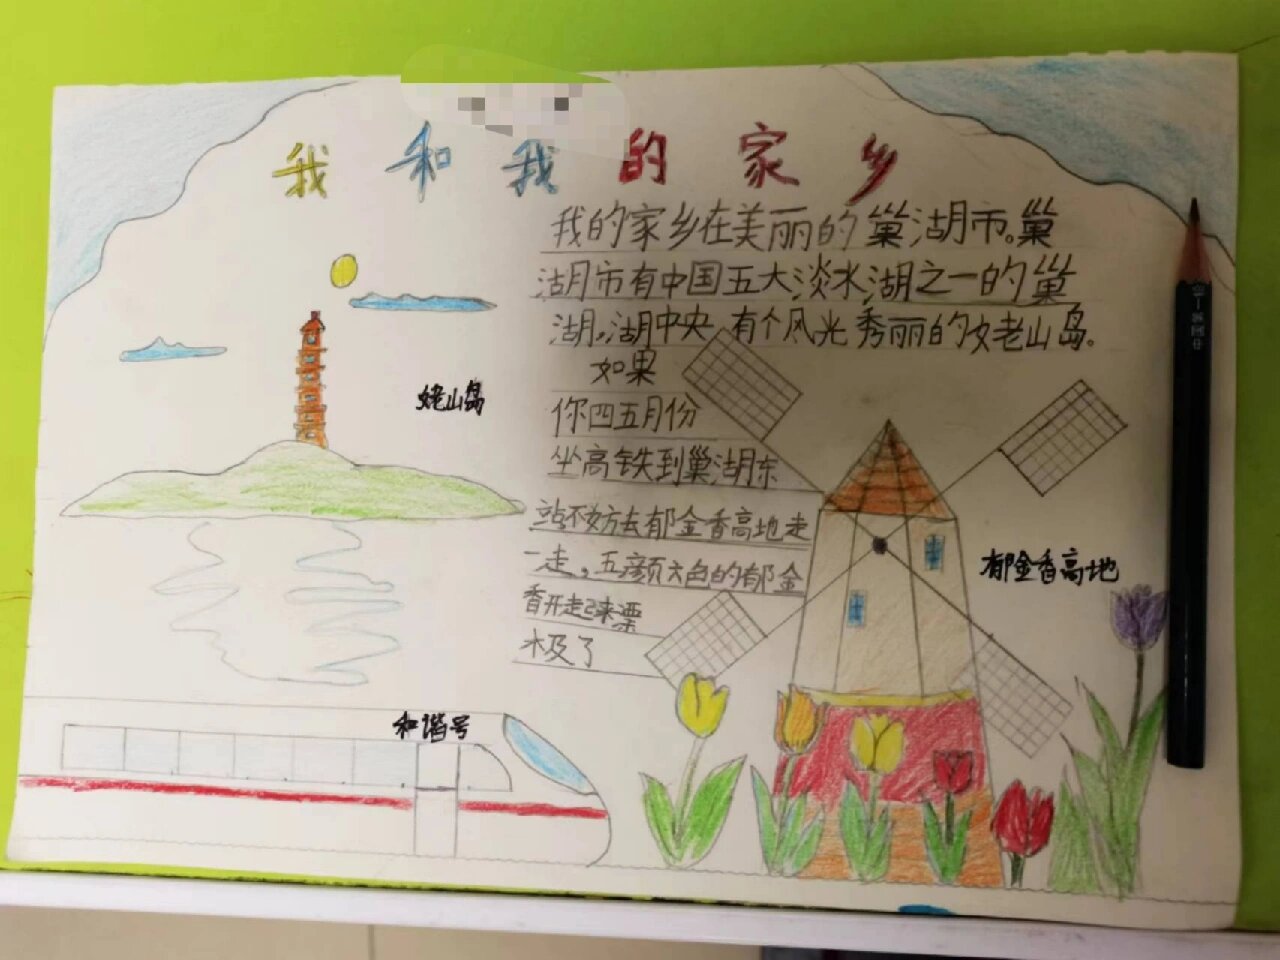 我和我的家乡
我的家乡在美丽的巢湖市。巢
湖市有中国五大淡水湖之一的巢
湖,湖中央有个风光秀丽的姥山岛.
如果
你四五月份
坐高铁到巢湖东
站不妨去郁金香高地走
一走,五颜六色的郁金
香开起来漂
极了
姥山岛
郁金香高地
和谐号